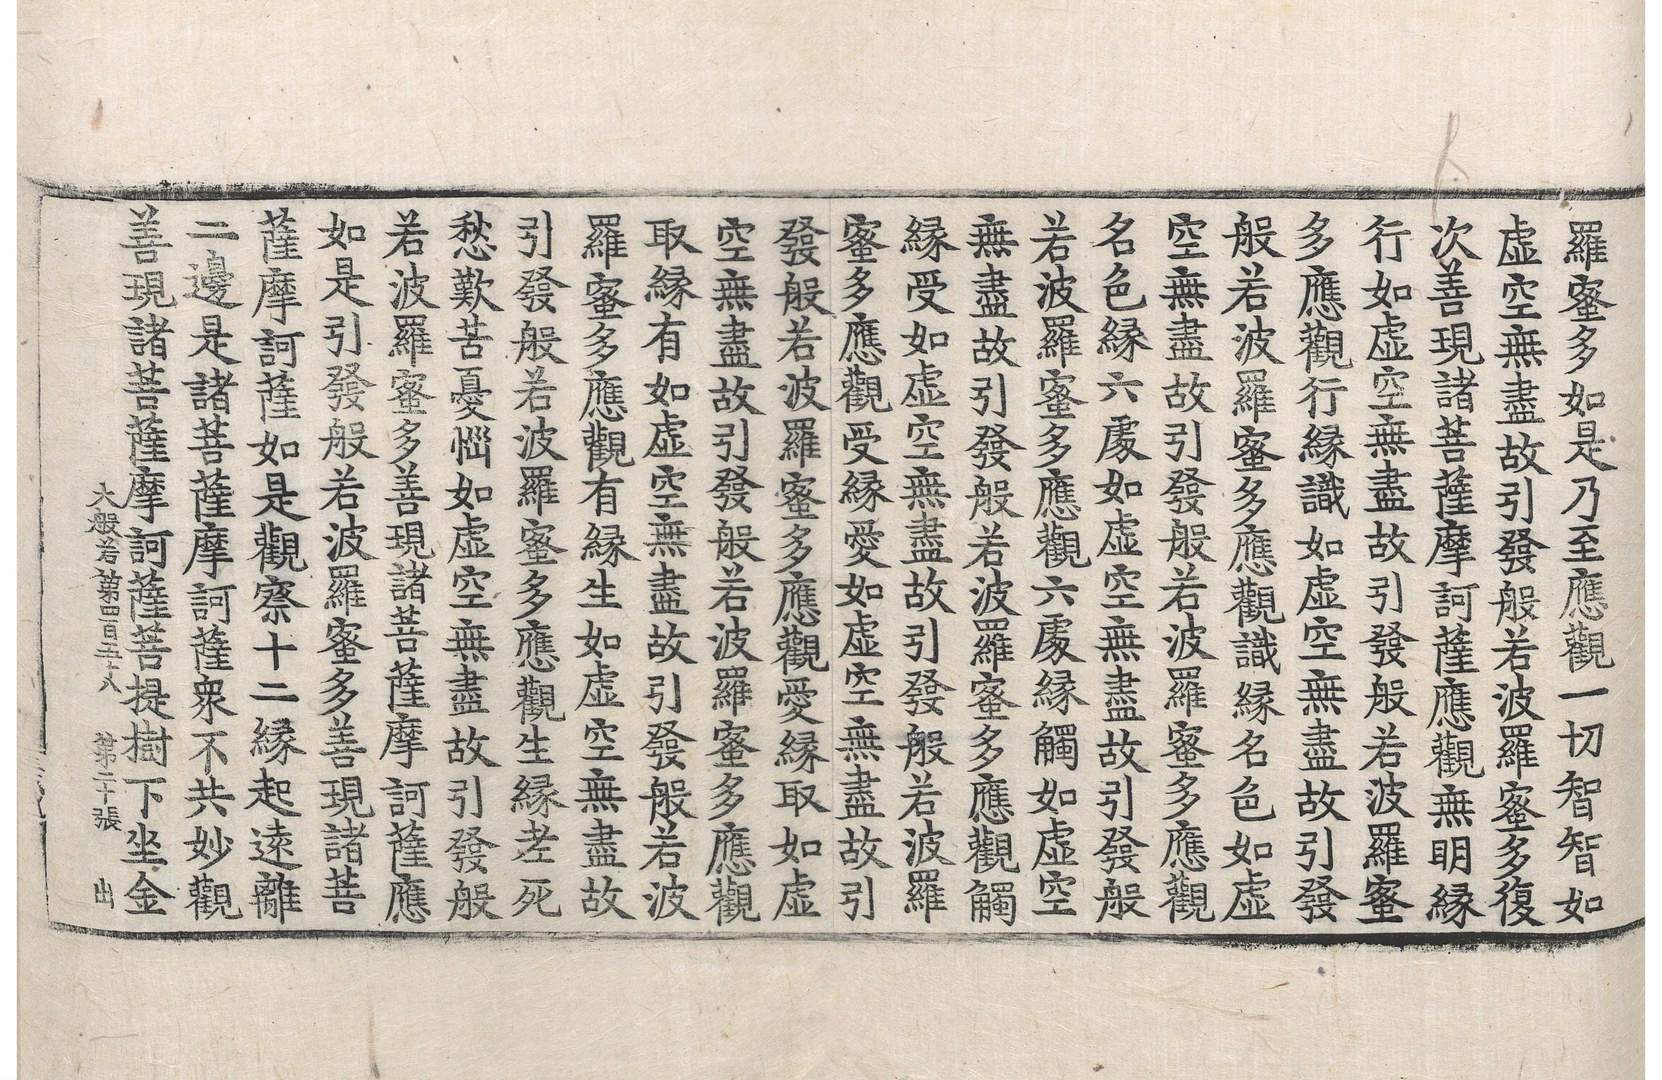 羅蜜多如是乃至應觀一切智智如
虛空無盡故引發般若波羅蜜多復
次善現諸菩薩摩訶薩應觀無明緣
行如虛空無盡故引發般若波羅蜜
多應觀行緣識如虛空無盡故引發
般若波羅蜜多應觀識緣名色如虛
空無盡故引發般若波羅蜜多應觀
名色緣六處如虛空無盡故引發般
若波羅蜜多應觀六處緣觸如虛空
無盡故引發般若波羅蜜多應觀觸
緣受如虛空無盡故引發般若波羅
蜜多應觀受緣愛如虛空無盡故引
發般若波羅蜜多應觀愛緣取如虛
空無盡故引發般若波羅蜜多應觀
取緣有如虛空無盡故引發般若波
羅蜜多應觀有緣生如虛空無盡故
引發般若波羅蜜多應觀生緣老死
愁歎苦憂惱如虛空無盡故引發般
若波羅蜜多善現諸菩薩摩訶薩應
如是引發般若波羅蜜多善現諸菩
薩摩訶薩如是觀察十二緣起遠離
二邊是諸菩薩摩訶薩衆不共妙觀
善現諸菩薩摩訶薩菩提樹下坐金
大般若第四百五十八 第二十張 出